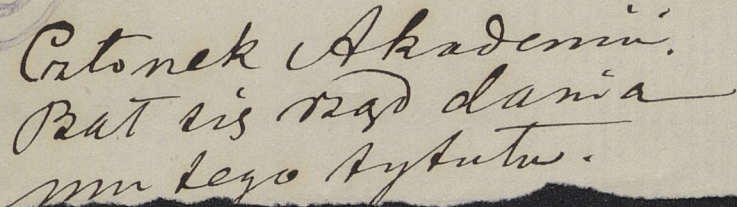 Członek Akademii.
Bał się rząd dania
mu tego tytułu.